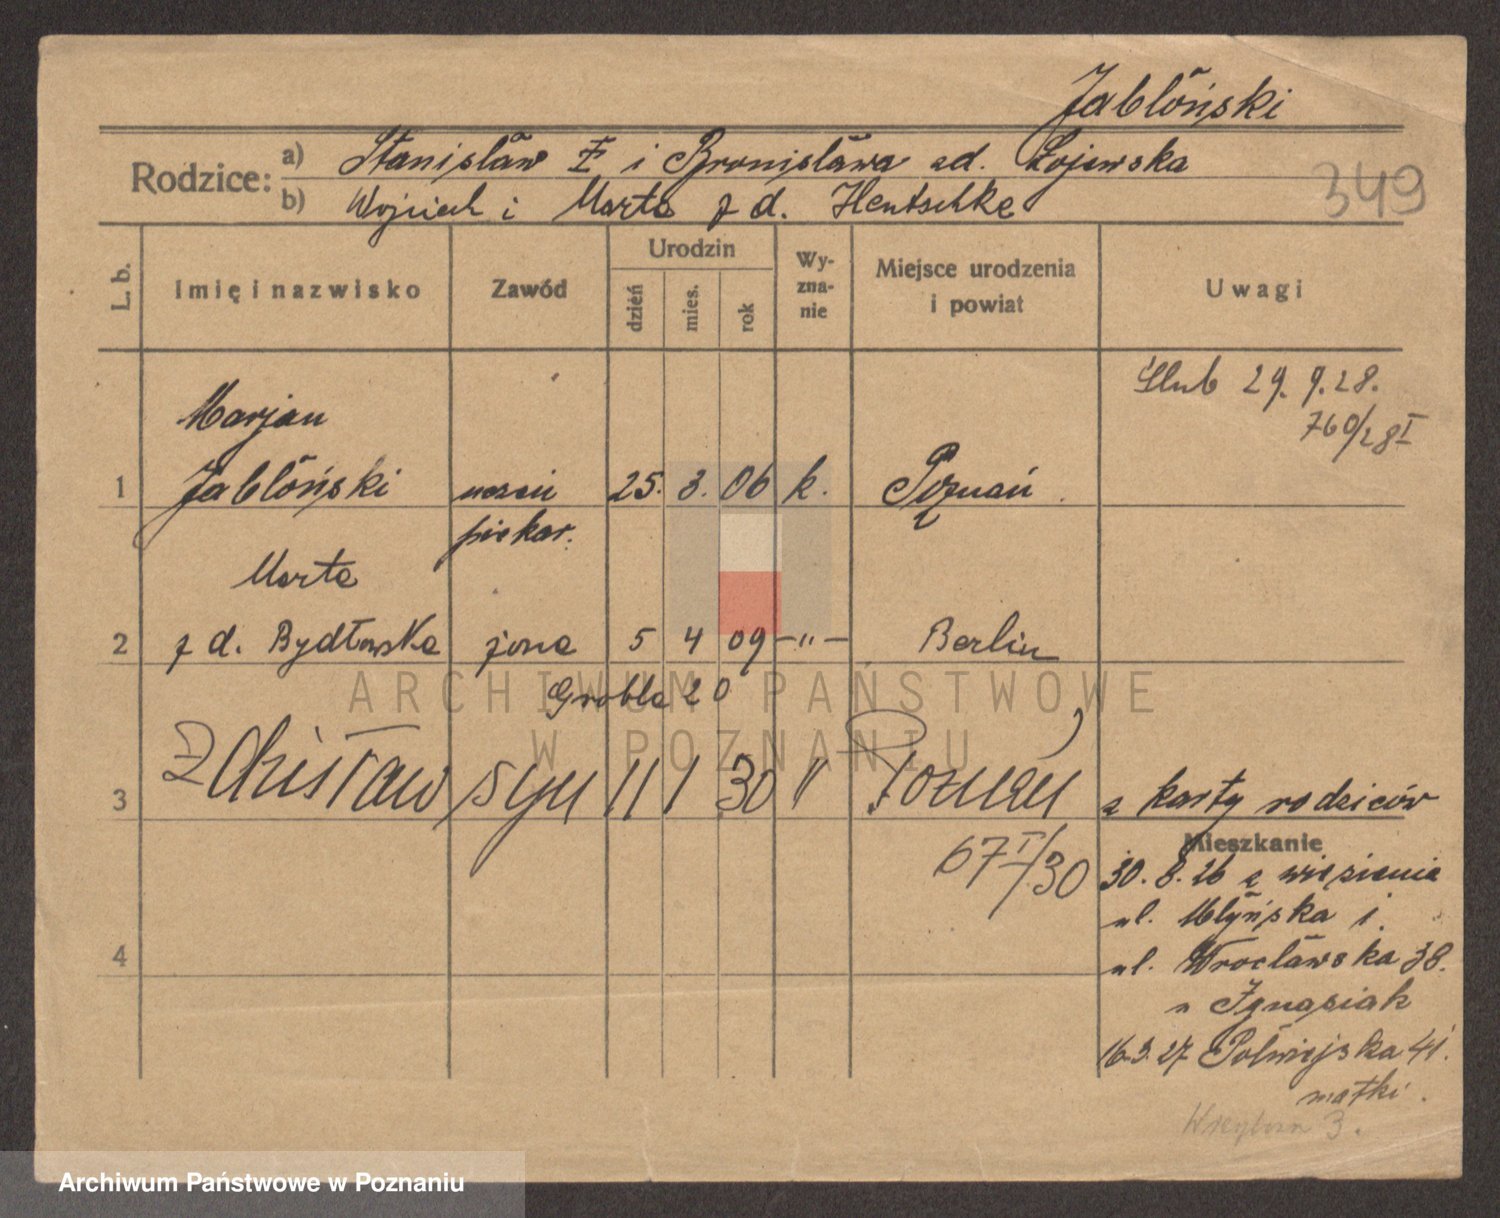 Jabłoński
Rodzice: a) Stanisław i Bronisława zd. Łojewska
b) Wojciech i Marta z d. Hentschke
349
L. b. Imię i nazwisko Zawód Urodzin Wy-zna-nie Miejsce urodzenia i powiat Uwagi
dzień mies. rok
Ślub 29. 9. 28.
760/28 I
Marjan
1 Jabłoński uczeń 25. 3. 06 k. Poznań
piekar.
Marta
2 z d. Bydłowska żona 5 4 09 -"- Berlin
Grobla 20
3 Zdzisław syn 11 1 30 " Poznań z karty rodziców
67 I/30
Mieszkanie
30. 8. 26 z więzienia
ul. Młyńska i
4 ul. Wrocławska 38.
u Ignasiak
16.3.27 Półwiejska 41.
matki.
3.
ARCHIWUM PAŃSTWOWE
W POZNANIU
Archiwum Państwowe w Poznaniu